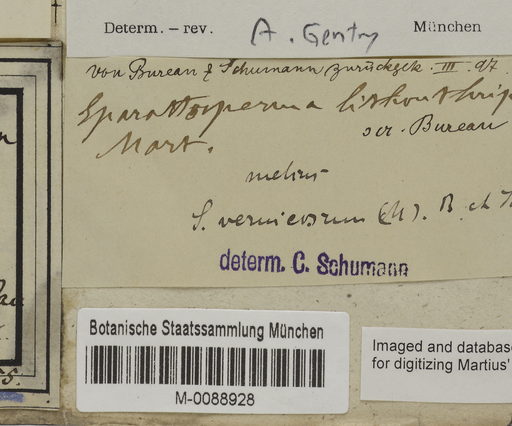 Determ. – rev. A. Gentry München
von Bureau & Schumann zurückgek. III. 97.
Sparattosperma lithonthrip
Mart. scr. Bureau
melius
S. vernicosum (Ch). B. et
determ. C. Schumann
Botanische Staatssammlung München
M-0088928
Imaged and database
for digitizing Martius'